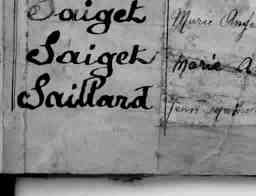 Saiget Marie Ange
Saiget Marie A
Saillard Jean